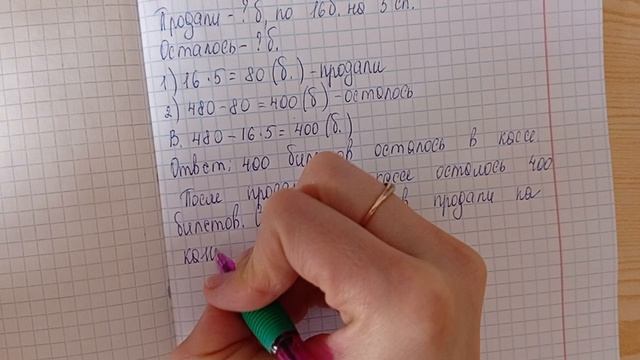 Продали - ? б. по 16 б. на 5 сп.
Осталось - ? б.
1) 16 · 5 = 80 (б.) - продали
2) 480 - 80 = 400 (б) - осталось
В. 480 - 16 · 5 = 400 (б.)
Ответ: 400 билетов осталось в кассе
После кассе осталось 400
билетов. в продали на